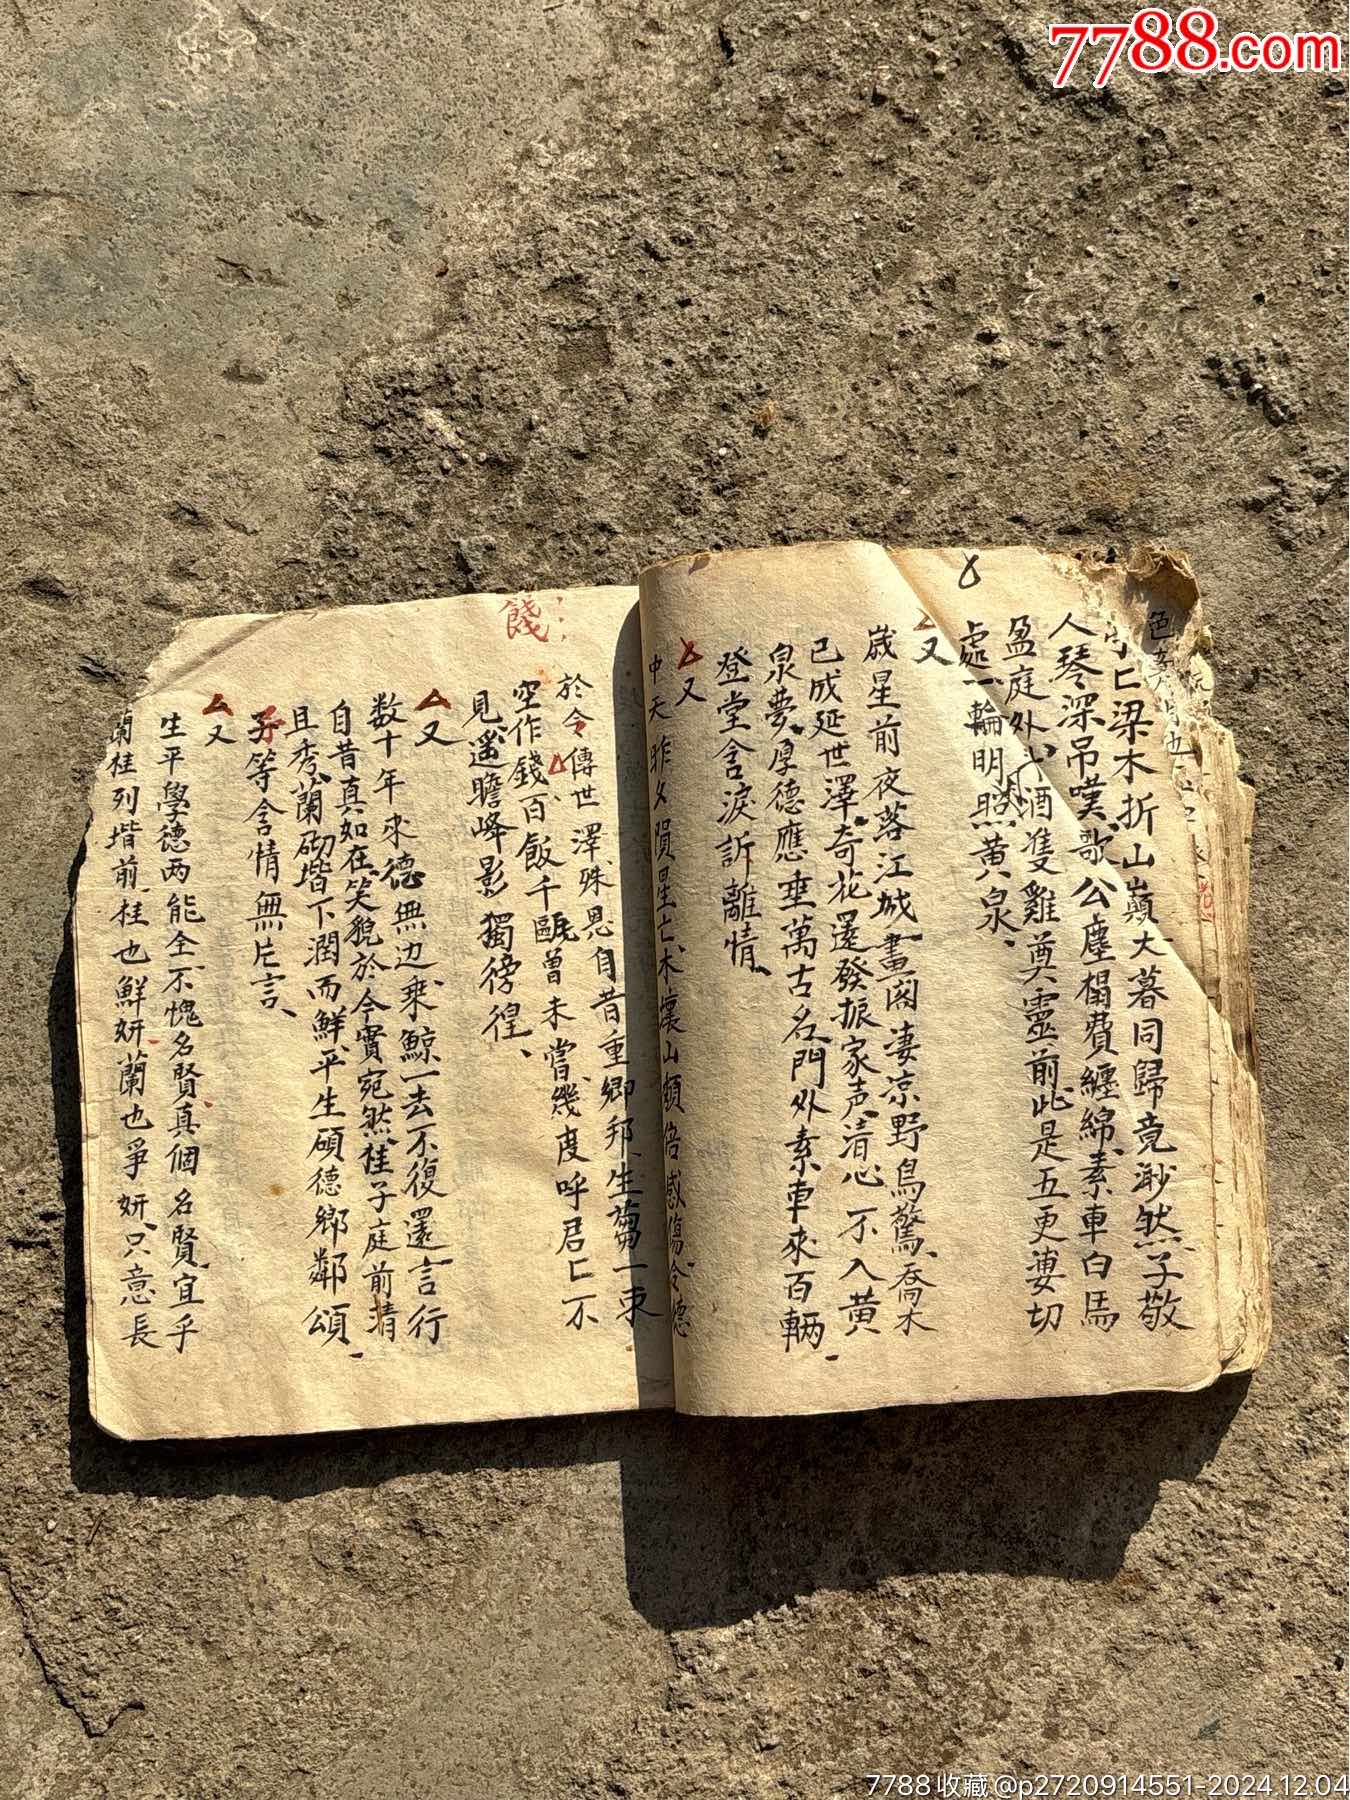 7788.com
亡梁木折山巔大暮同歸竟渺然子敬
人琴深吊嘆歌公塵榻費纏綿素車白馬
盈庭外斗酒隻雞奠靈前此是五更淒切
處一輪明照黃泉
又
歲星前夜落江城畫閣淒凉野鳥驚喬木
已成延世澤奇花還發振家声清心不入黃
泉夢厚德應垂萬古名門外素車來百輛
登堂含淚訴離情
又
中天昨夕隕星亡木壞山頹倍感傷令德
餞
於今傳世澤殊恩自昔重鄉邦生蒭一束
空作錢百飯千甌曾未嘗幾度呼君亡不
見遥瞻峰影獨徬徨
又
数十年來德無边乘鯨一去不復還言行
自昔真如在笑貌於今實宛然桂子庭前清
且秀蘭砌堦下潤而鮮平生碩德鄉鄰頌
子等含情無片言
又
生平學德两能全不愧名賢真個名賢宜乎
蘭桂列堦前桂也鮮妍蘭也爭妍只意長
7788收藏@p2720914551-2024.12.04